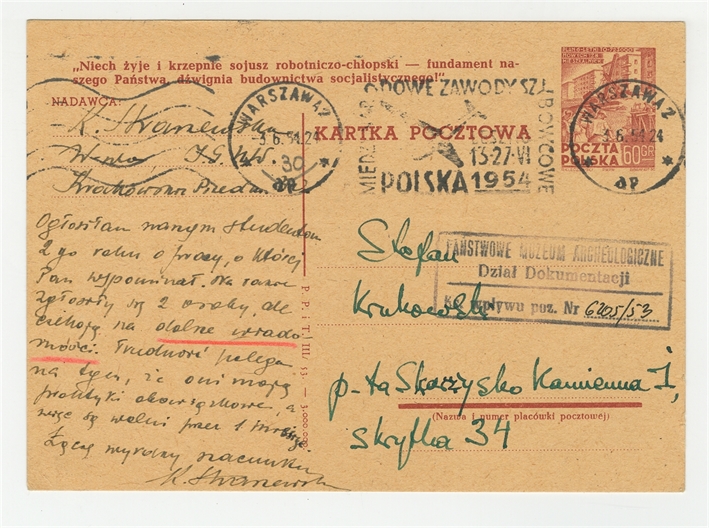 „Niech żyje i krzepnie sojusz robotniczo-chłopski — fundament na-
szego Państwa, dźwignia budownictwa socjalistycznego!"
NADAWCA:
K. Straszewska
I.H.K.M.
Krakowskie Przedm.
WARSZAWA 2
3.6.54.24
3c
ap
MIĘDZYNARODOWE ZAWODY SZYBOWCOWE
LESZNO
13-27-VI
POLSKA 1954
KARTKA POCZTOWA
WARSZAWA 2
3.6.54.24
ap
POCZTA
POLSKA 60 GR
Ogłosiłam naszym studentom
2-go roku o pracy, o której
Pan wspominał. Na razie
zgłosiły się 2 osoby, ale
czekają na dalne wiado
mości. Trudność polega
na tym, że oni mają
praktyki obowiązkowe, a
więc są wolni przez 1 miesiąc
Łączę wyrazy szacunku
K. Straszewska
P. P. T. T. III/53 — 3.000.000.
Stefan
Krukowski
p-ta Skarżysko Kamienna 1,
(Nazwa i numer placówki pocztowej)
skrytka 34
PAŃSTWOWE MUZEUM ARCHEOLOGICZNE
Dział Dokumentacji
Ks. wpływu poz. Nr 6205/53